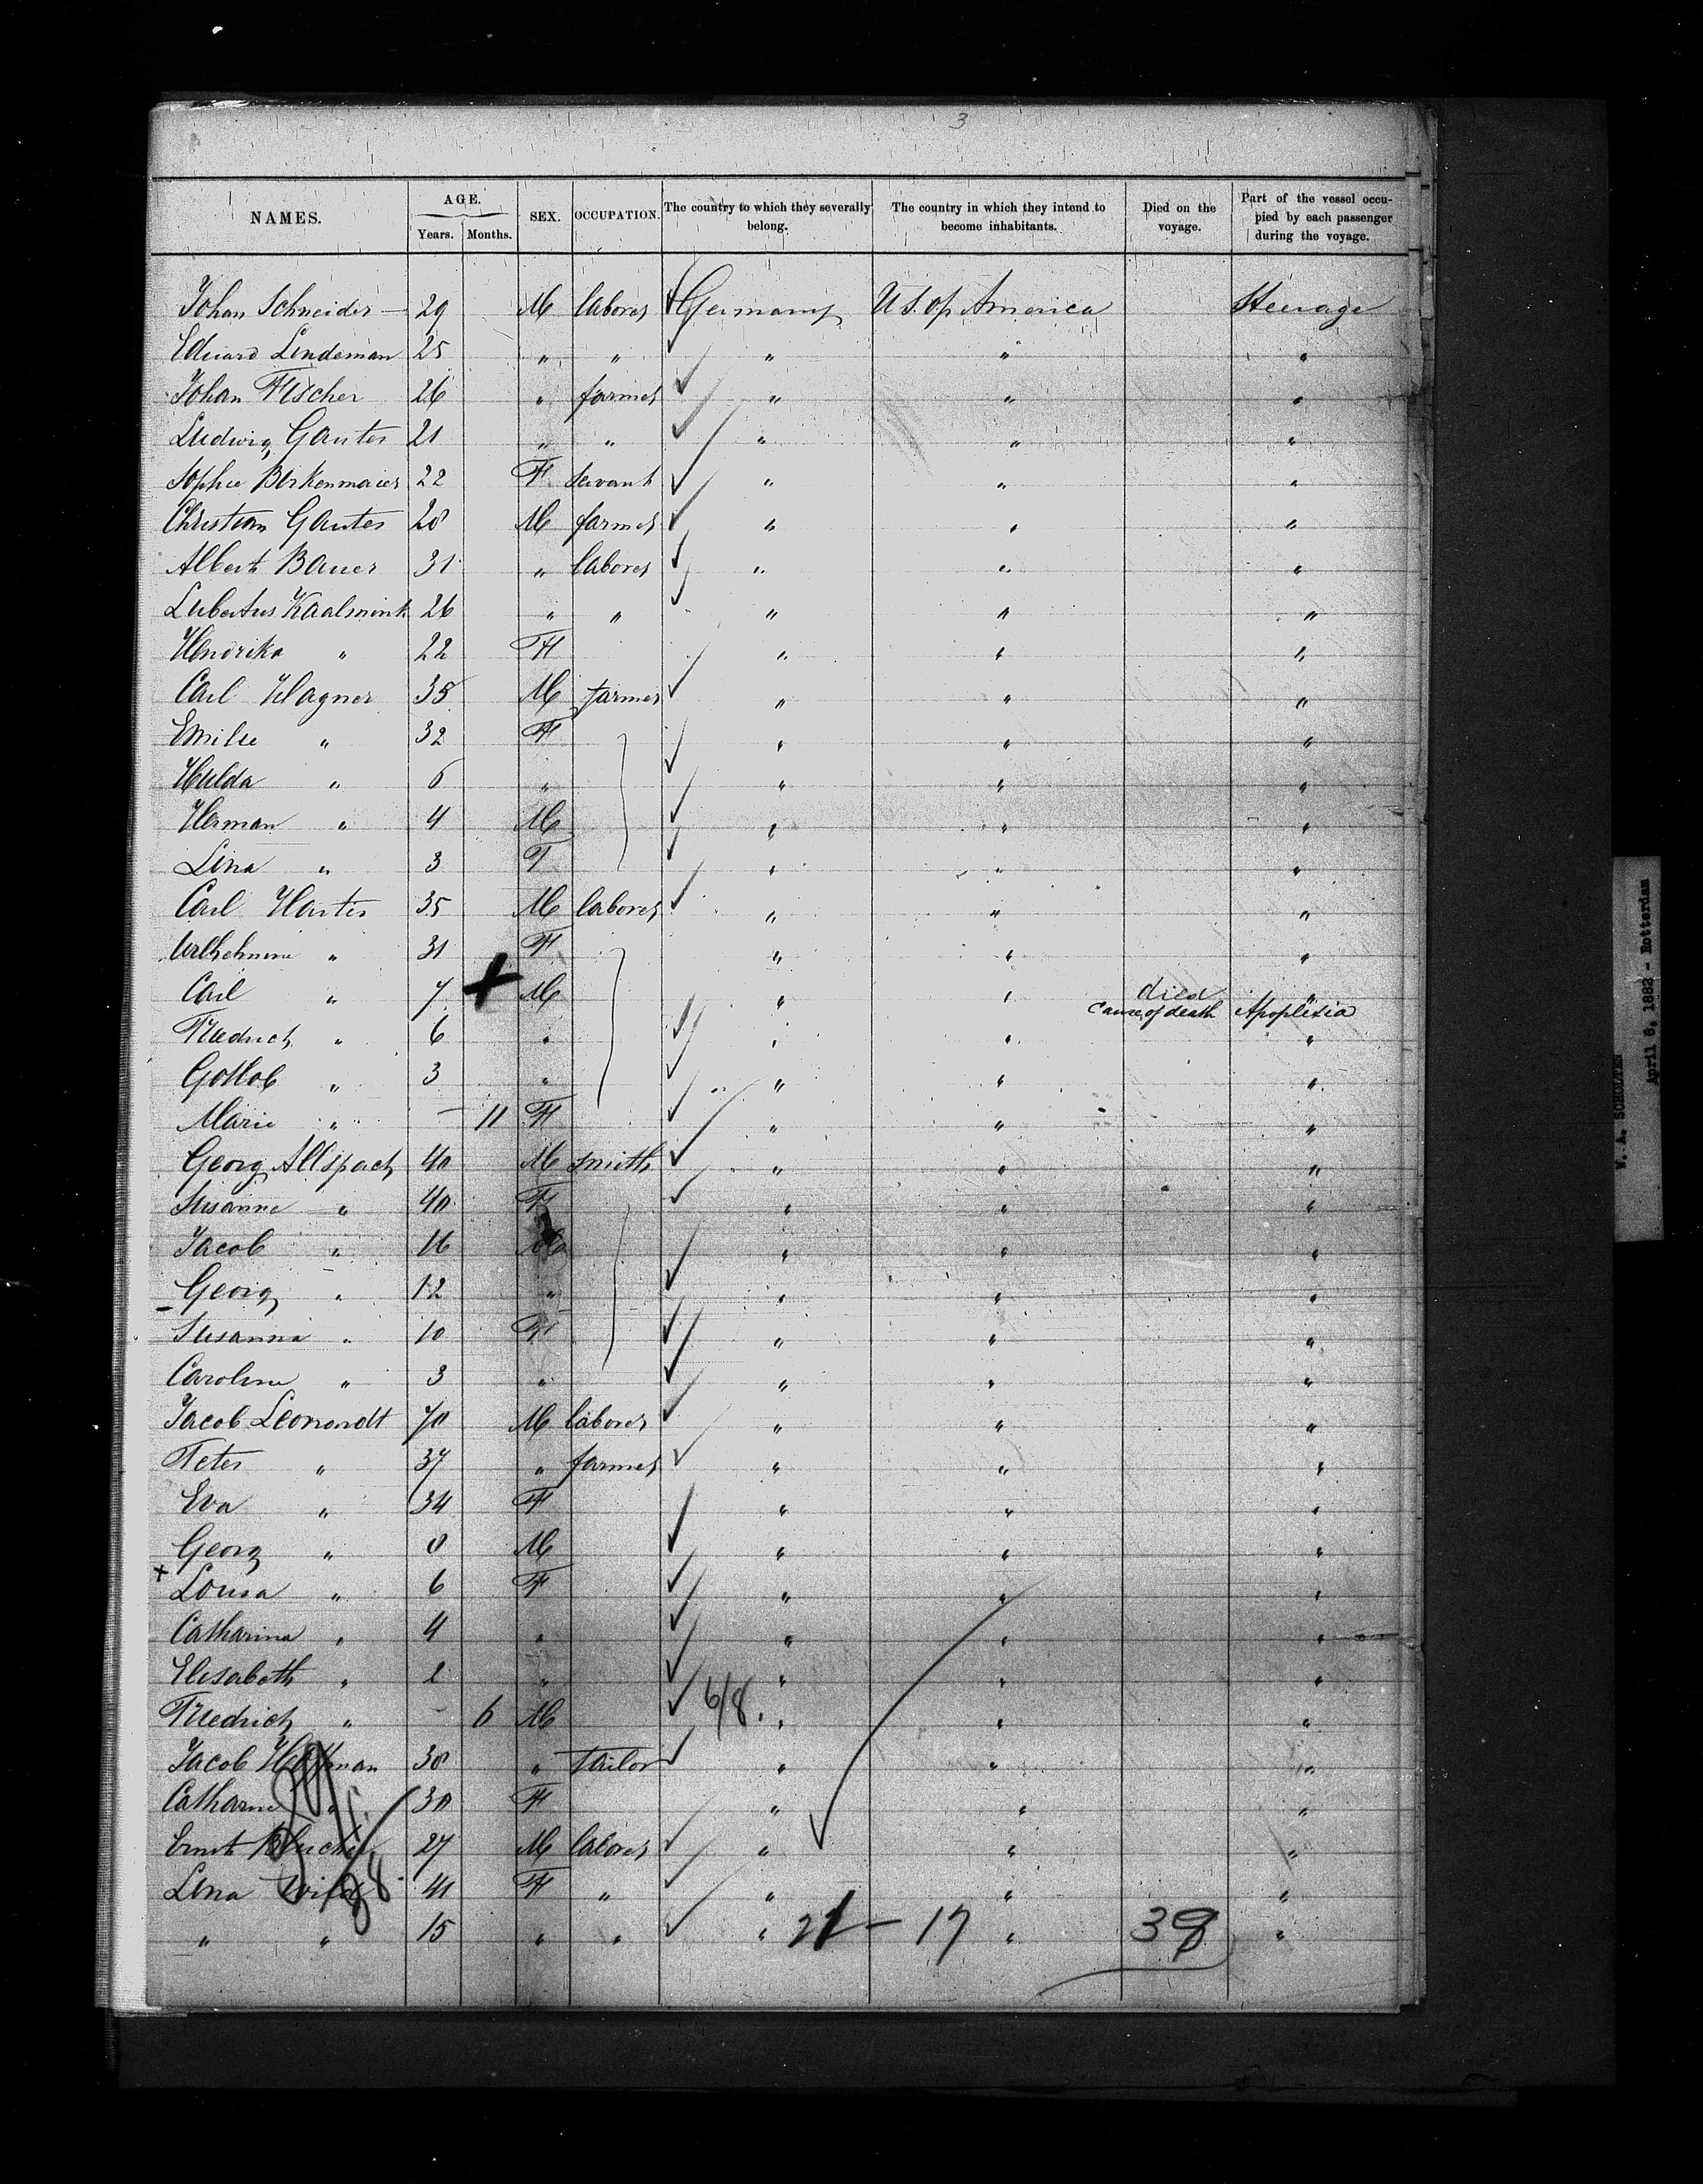 3
NAMES. AGE. SEX. OCCUPATION. The country to which they severally belong. The country in which they intend to become inhabitants. Died on the voyage. Part of the vessel occupied by each passenger during the voyage.
Years. Months.
Johan Schneider — 29 M laborer Germany U.S. of America Steerage
Eduard Lindeman 25 " " " " "
Johan Fischer 26 " farmer " " "
Ludwig Gauter 21 " " " " "
Sophie Berkenmaier 22 F servant " " "
Christian Gauter 28 M farmer " " "
Albert Bauer 31 " laborer " " "
Lubertus Kaalmink 26 " " " " "
Hendrika " 22 F " " "
Carl Wagner 35 M farmer " " "
Emilie " 32 F " " "
Hulda " 6 " " " "
Herman " 4 M " " "
Lina " 3 F " " "
Carl Harter 35 M laborer " " "
Wilhelmine " 31 F " " "
Carl " 7 + M " " died "
cause of death Apoplexia
Friedrich " 6 " " " "
Gottlob " 3 " " " "
Marie " — 11 F " " "
Georg Allspach 40 M smith " " "
Susanne " 40 F " " "
Jacob " 16 M " " "
Georg " 12 " " " "
Susanna " 10 F " " "
Caroline " 3 " " " "
Jacob Leonardt 70 M laborer " " "
Peter " 37 " farmer " " "
Eva " 34 F " " "
Georg " 8 M " " "
+ Lousa " 6 F " " "
Catharina " 4 " " " "
Elisabeth " 2 " " " "
Friedrich " — 6 M 6/8. " " "
Jacob 38 " tailor " " "
Catharine " 30 F " " "
Ernst 27 M laborer " " "
Lina 41 F " " " "
" " 15 " " " 21 — 17 " 38 "
W. A. SCHOLTEN
April 6, 1882 - Rotterdam